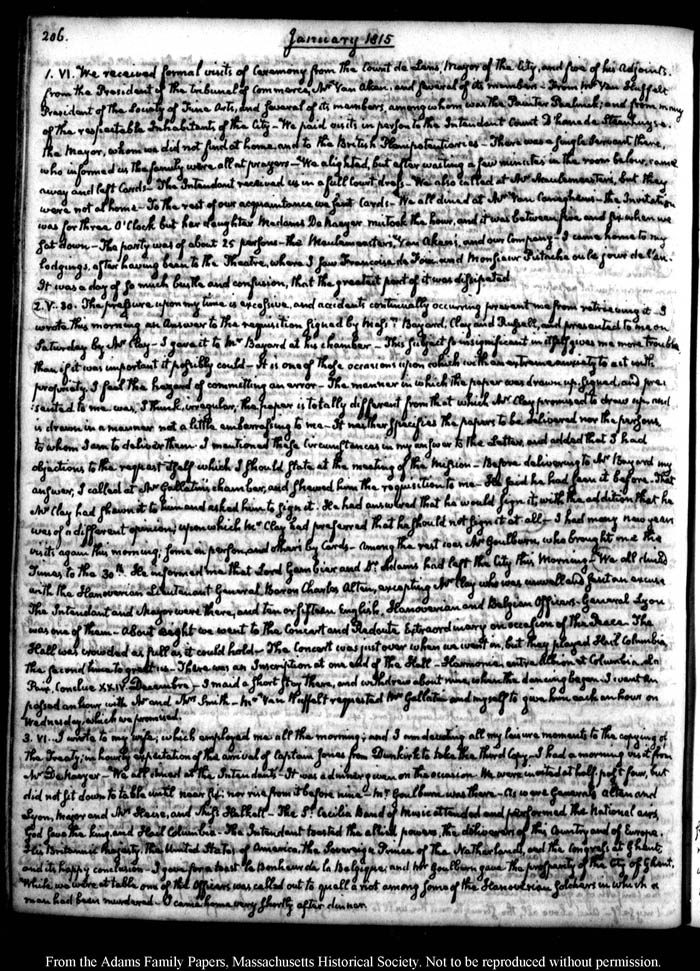 206.
January 1815
1. VI. We received formal visits of Ceremony from the Count de Lens, Mayor of the City, and five of his Adjoints.
from the President of the tribunal of Commerce, Mr Van Aken, and several of its members - From Mr Van Huffel
President of the Society of Fine Arts, and several of its members, among whom was the Painter Paelinck; and from many
of the respectable Inhabitants of the City - We paid visits in person to the Intendant Count D'hane de Steenhuyse.
the Mayor, whom we did not find at home, and to the British Plenipotentiaries - There was a single Servant there,
who informed us the family were all at prayers - We alighted, but after waiting a few minutes in the room below, came
away and left Cards - The Intendant received us in a full Court dress - We also called at Mr Meulemeester's, but they
were not at home - To the rest of our acquaintance we sent Cards - We all dined at Mr Van Coneghem's - the Invitation
was for three O'Clock but her daughter Madame DeKaeger mistook the hour, and it was between five and six when we
sat down - The party was of about 25 persons - the Meulemeesters, Van Akens, and our Company - I came home to my
lodgings, after having been to the Theatre, where I saw Francoise de Foix and Monsieur Pistache ou le jour de l'an.
It was a day of so much bustle and confusion, that the greatest part of it was dissipated.
2. V. 30. The pressure upon my time is excessive, and accidents continually occurring prevent me from retrieving it - I
wrote this morning an Answer to the requisition signed by Messrs Bayard, Clay and Russell, and presented to me on
Saturday by Mr Clay - I gave it to Mr Bayard at his chamber - This subject so insignificant in itself gives me more trouble
than if it was important it possibly could - It is one of those occasions upon which with an extreme anxiety to act with
propriety, I feel the hazard of committing an error - The manner in which the paper was drawn up, signed, and pre-
sented to me was, I think, irregular, the paper is totally different from that which Mr Clay promised to draw up and
is drawn in a manner not a little embarrassing to me - It neither specifies the papers to be delivered nor the persons
to whom I am to deliver them. I mentioned these circumstances in my answer to the Letter, and added that I had
objections to the request itself which I should state at the meeting of the Mission - Before delivering to Mr Bayard my
answer, I called at Mr Gallatin's chamber, and shewed him the requisition to me - He said he had seen it before. That
Mr Clay had shewn it to him and asked him to sign it. He had answered that he would sign it, with the addition that he
was of a different opinion; upon which Mr Clay had preferred that he should not sign it at all - I had many new years
visits again this morning; some in person, and others by Cards - Among the rest was Mr Goulburn, who brought me the
Times to the 30th. He informed me that Lord Gambier and Dr Adams had left the City this Morning - We all dined
with the Hanoverian Lieutenant General Baron Charles Alten, excepting Mr Clay who was unwell and sent an excuse
The Intendant and Mayor were there, and ten or fifteen English, Hanoverian and Belgian Officers - General Lyon
was one of them - About eight we went to the Concert and Redoute Extraordinary on occasion of the Peace - The
Hall was crowded as full as it could hold - The Concert was just over when we went in, but they played Hail Columbia
the second time to greet us - There was an Inscription at one end of the Hall - Harmonie entre Albion et Columbia. La
Paix, Conclue XXIV. Decembre - I made a short stay there, and withdrew about nine, when the dancing began. I went and
passed an hour with Mr and Mrs Smith - Mr Van Huffel requested Mr Gallatin and myself to give him each an hour on
Wednesday, which we promised.
3. VI. I wrote to my wife; which employed me all the morning; and I am devoting all my leisure moments to the copying of
the Treaty, in hourly expectation of the arrival of Captain Jones from Dunkirk to take the third Copy - I had a morning visit from
Mr DeKaeger - We all dined at the Intendant's - It was a dinner given on the occasion. We were invited at half past four, but
did not sit down to table until near six; nor rise from it before nine - Mr Goulburn was there - As were Generals Alten and
Lyon, Mayor and Mrs - The St Cecilia Band of Music attended and performed the National airs,
God save the king, and Hail Columbia - The Intendant toasted the allied powers, the deliverers of this Country and of Europe.
His Britannic Majesty. The United States of America, the Sovereign Prince of the Netherlands, and the Congress at Ghent,
and its happy conclusion - I gave for a toast le Bonheur de la Belgique; and Mr Goulburn gave the prosperity of the City of Ghent.
While we were at table one of the Officers was called out to quell a riot among some of the Hanoverian Soldiers in which a
man had been murdered - I came home very shortly after dinner.
From the Adams Family Papers, Massachusetts Historical Society. Not to be reproduced without permission.